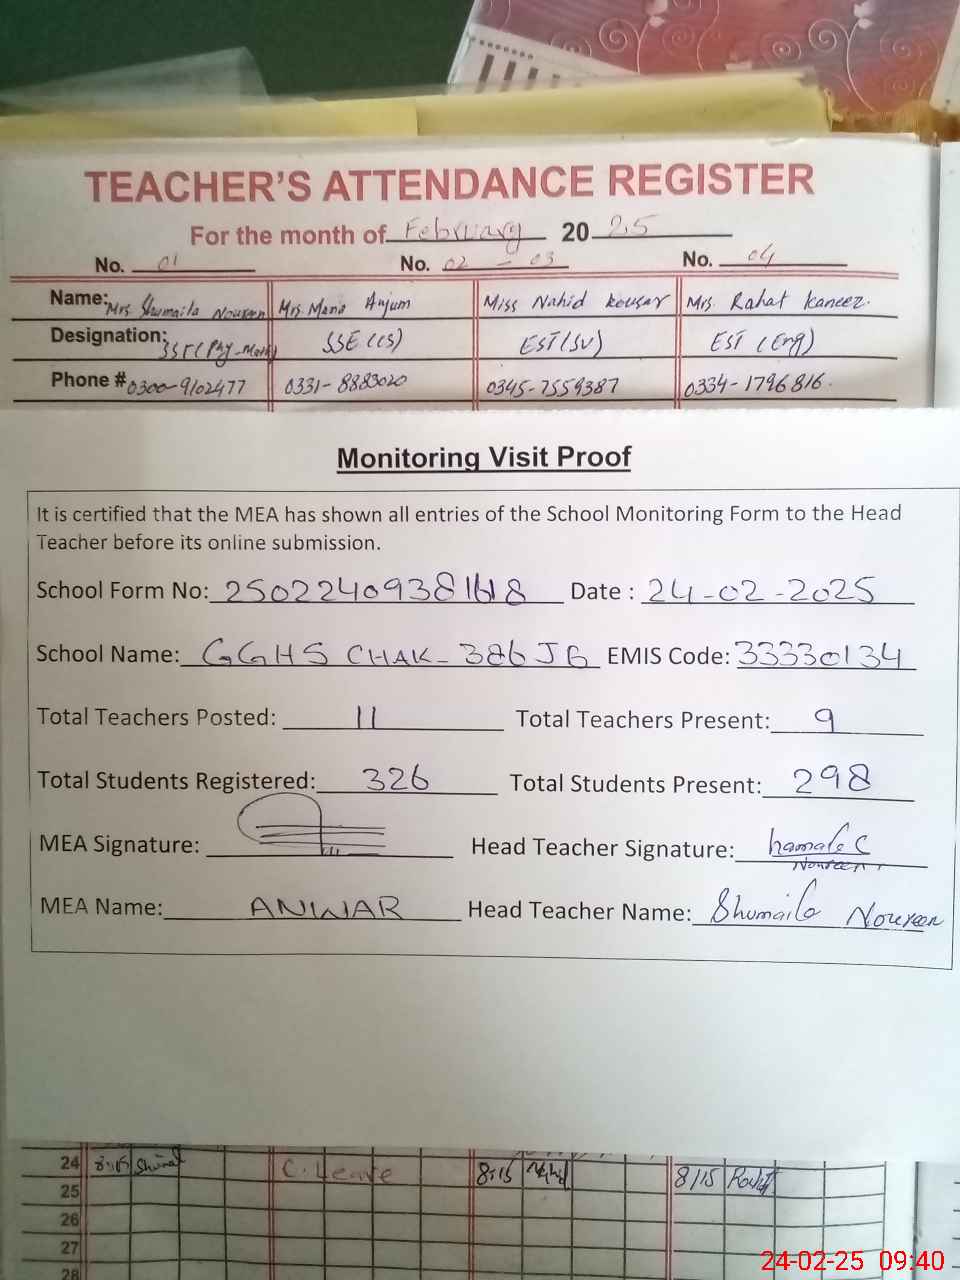 TEACHER'S ATTENDANCE REGISTER
For the month of February 2025
No. 01 No. 02 - 03 No. 04
Name: Mrs. Shumaila Noureen Mrs. Maria Anjum Miss Nahid Kousar Mrs. Rahat Kaneez.
Designation: SST (Phy-Math) SSE (CS) EST (SV) EST (Eng)
Phone # 0300-9102477 0331-8883020 0345-7559387 0334-1796816.
Monitoring Visit Proof
It is certified that the MEA has shown all entries of the School Monitoring Form to the Head
Teacher before its online submission.
School Form No: Date : 24-02-2025
School Name: GGHS CHAK-386 JB EMIS Code: 33330134
Total Teachers Posted: 11 Total Teachers Present: 9
Total Students Registered: 326 Total Students Present: 298
MEA Signature: Head Teacher Signature: Noureen
MEA Name: ANWAR Head Teacher Name: Shumaila Noureen
24 8:15 C. Leave 8:15 Nahid 8/15
25
26
27
28
24-02-25 09:40